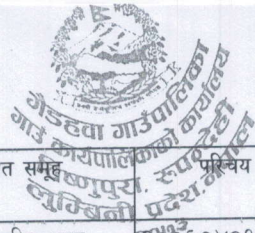 गैडहवा गाउँपालिका
गाउँ कार्यपालिकाको कार्यालय
विष्णुपुरा, रुपन्देही
लुम्बिनी प्रदेश, नेपाल
त समूह
परिचय